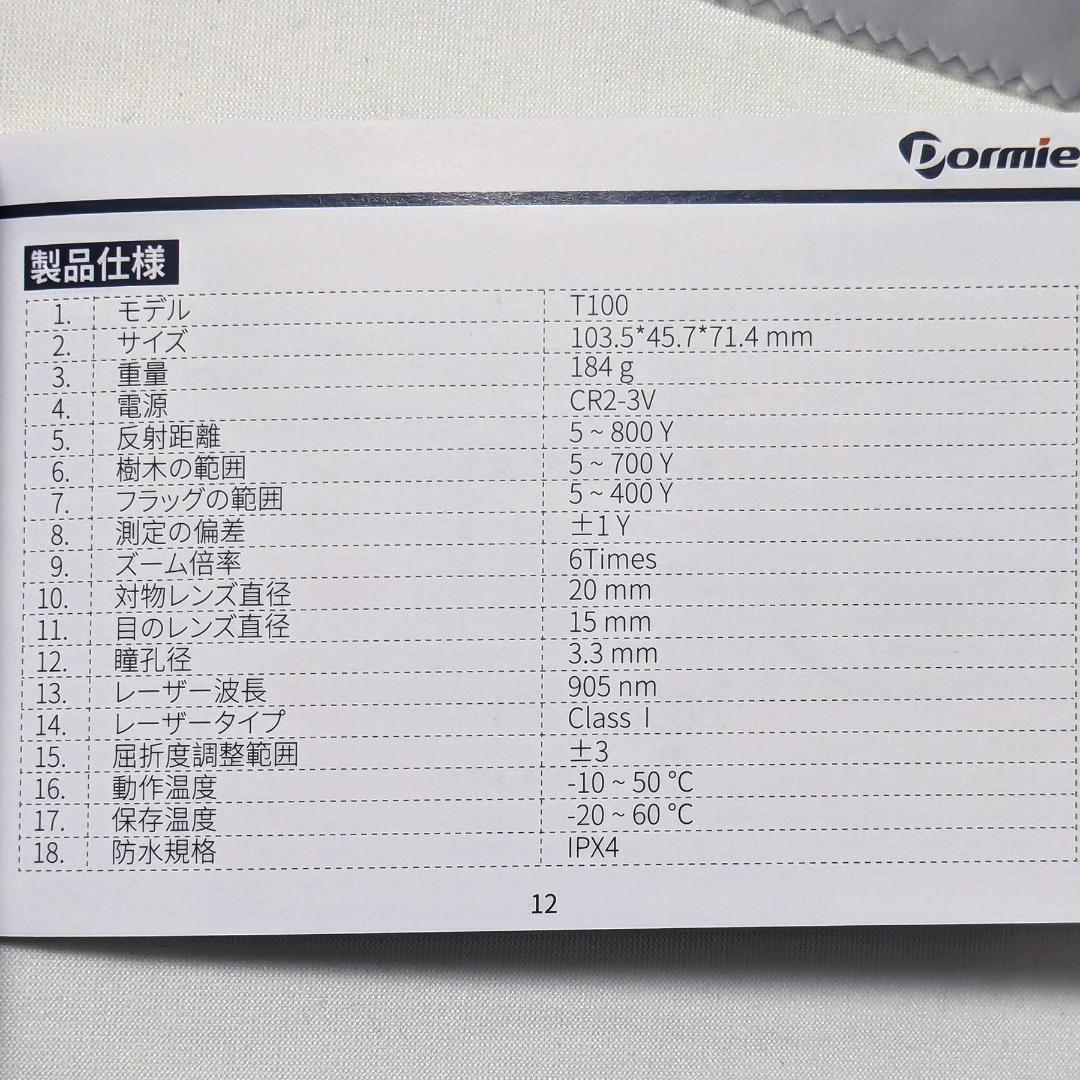 Dormie
製品仕様
1. モデル T100
2. サイズ 103.5*45.7*71.4 mm
3. 重量 184 g
4. 電源 CR2-3V
5. 反射距離 5 ~ 800 Y
6. 樹木の範囲 5 ~ 700 Y
7. フラッグの範囲 5 ~ 400 Y
8. 測定の偏差 ±1 Y
9. ズーム倍率 6Times
10. 対物レンズ直径 20 mm
11. 目のレンズ直径 15 mm
12. 瞳孔径 3.3 mm
13. レーザー波長 905 nm
14. レーザータイプ Class Ⅰ
15. 屈折度調整範囲 ±3
16. 動作温度 -10 ~ 50 ℃
17. 保存温度 -20 ~ 60 ℃
18. 防水規格 IPX4
12